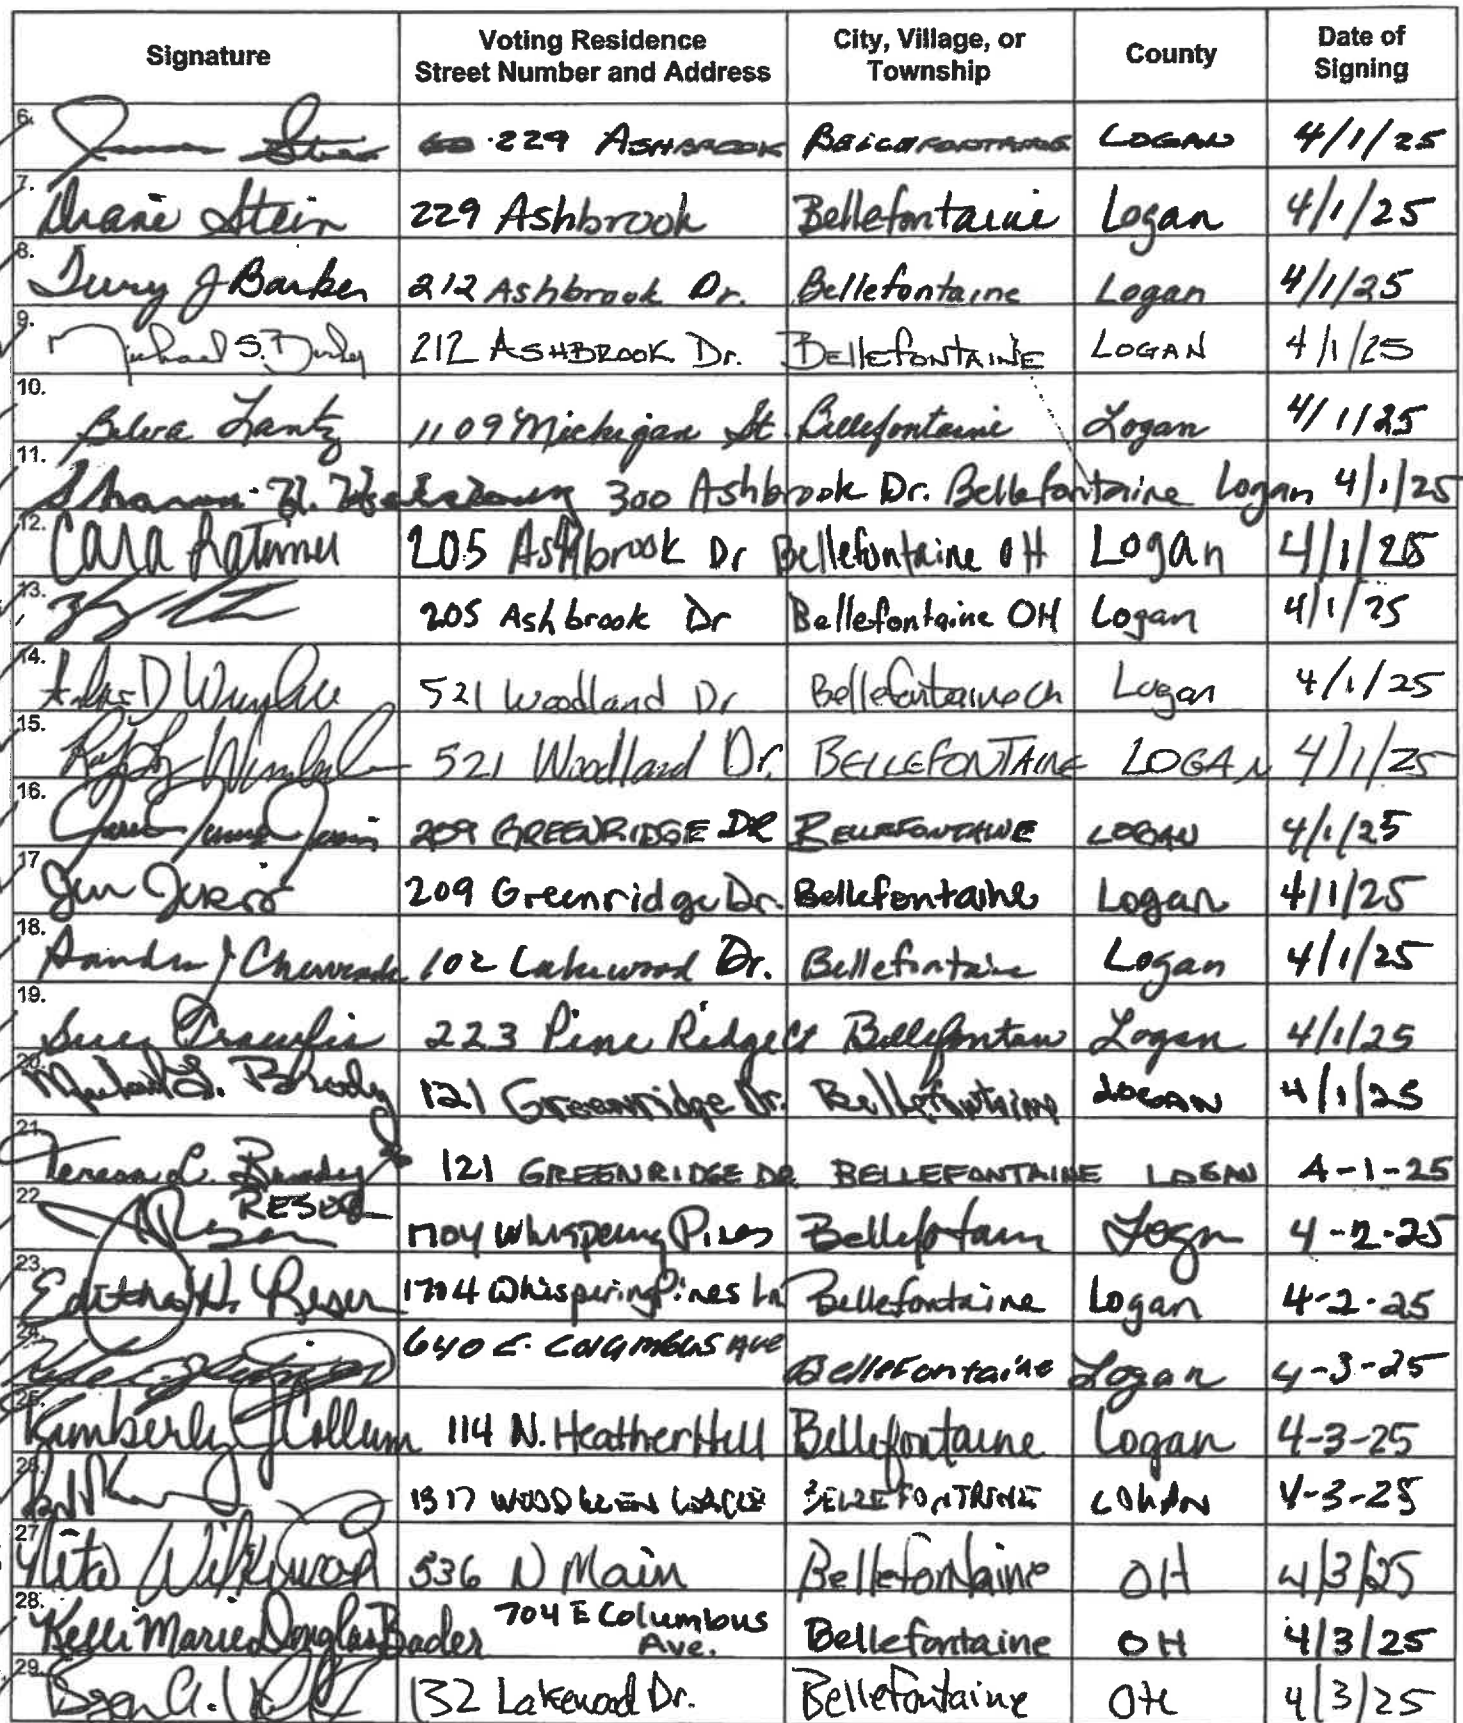 Signature Voting Residence Street Number and Address City, Village, or Township County Date of Signing
6. 229 ASHBROOK LOGAN 4/1/25
7. Diane Stein 229 Ashbrook Bellefontaine Logan 4/1/25
8. J Barker 212 Ashbrook Dr. Bellefontaine Logan 4/1/25
9. Michael S. 212 ASHBROOK Dr. BELLEfONTAINE LOGAN 4/1/25
10. Lantz 1109 Michigan St. Bellefontaine Logan 4/1/25
11. Sharon 300 Ashbrook Dr. Bellefontaine Logan 4/1/25
12. Cara 205 Ashbrook Dr Bellefontaine OH Logan 4/1/25
13. 205 Ashbrook Dr Bellefontaine OH Logan 4/1/25
14. D 521 Woodland Dr Bellefontaine Logan 4/1/25
15. 521 Woodland Dr. BELLEFONTAINE LOGAN 4/1/25
16. 209 GREENRIDGE DR BELLEFONTAINE LOGAN 4/1/25
17. 209 Greenridge Dr. Bellefontaine Logan 4/1/25
18. 102 Lakewood Dr. Bellefontaine Logan 4/1/25
19. 223 Pine Ridge Ct Logan 4/1/25
20. 121 Greenridge Dr. Bellefontaine LOGAN 4/1/25
21. Teresa L. 121 GREENRIDGE DR BELLEFONTAINE LOGAN 4-1-25
22. RESER 1704 Whispering Pines 4-2-25
23. Editha H. Reser 1704 Whispering Pines Ln Bellefontaine Logan 4-2-25
24. 640 E. COLUMBUS AVE Bellefontaine Logan 4-3-25
25. Kimberly J Collum 114 N. Heather Hill Bellefontaine Logan 4-3-25
26. 1317 WOODGLEN CIRCLE BELLEFONTAINE LOGAN 4-3-25
27. 536 N Main Bellefontaine OH 4/3/25
28. Kelli Marie Douglas Bader 704 E Columbus Ave. Bellefontaine OH 4/3/25
29. 132 Lakewood Dr. Bellefontaine OH 4/3/25